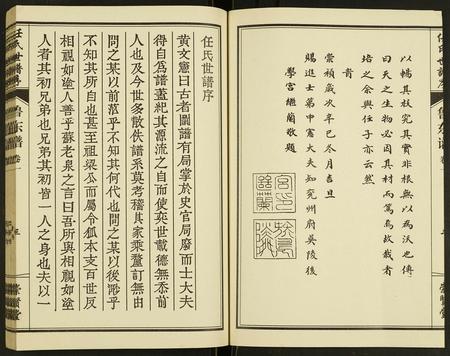 以暢其枝究其實非根無以為沃也傳
曰天之生物必因其材而篤焉故栽者
培之余與任子亦云然
旹
崇禎歲次辛巳冬月吉旦
賜進士第中憲大夫知兖州府吳陵後
學宮繼蘭敬題
任氏世譜序
黄文憲曰古者圖譜有局掌於史官局廢而士大夫
得自為譜蓋紀其源流之自而使奕世載德無忝前
人也及今世多散佚譜系莫考稽其家乘舊訂無由
問之某以前茫乎不知其何代也問之某以後渺乎
不知其所自也甚至祖梁公而屬令狐本支百世反
相視如塗人善乎蘇老泉之言曰吾所與相視如塗
人者其初兄弟也兄弟其初皆一人之身也夫以一
任氏世譜
魯东谱
卷一
三